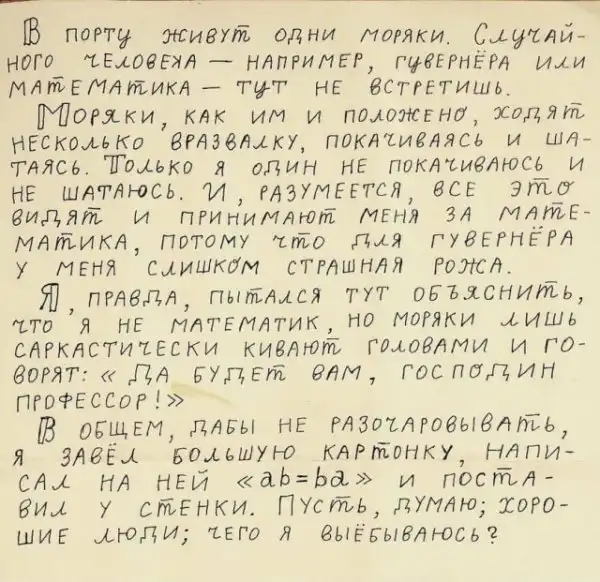 В порту живут одни моряки. Случай-
ного человека — например, гувернёра или
математика — тут не встретишь.
Моряки, как им и положено, ходят
несколько вразвалку, покачиваясь и ша-
таясь. Только я один не покачиваюсь и
не шатаюсь. И, разумеется, все это
видят и принимают меня за мате-
матика, потому что для гувернёра
у меня слишком страшная рожа.
Я, правда, пытался тут объяснить,
что я не математик, но моряки лишь
саркастически кивают головами и го-
ворят: «Да будет вам, господин
профессор!»
В общем, дабы не разочаровывать,
я завёл большую картонку, напи-
сал на ней «ab=ba» и поста-
вил у стенки. Пусть, думаю; хоро-
шие люди; чего я выёбываюсь?